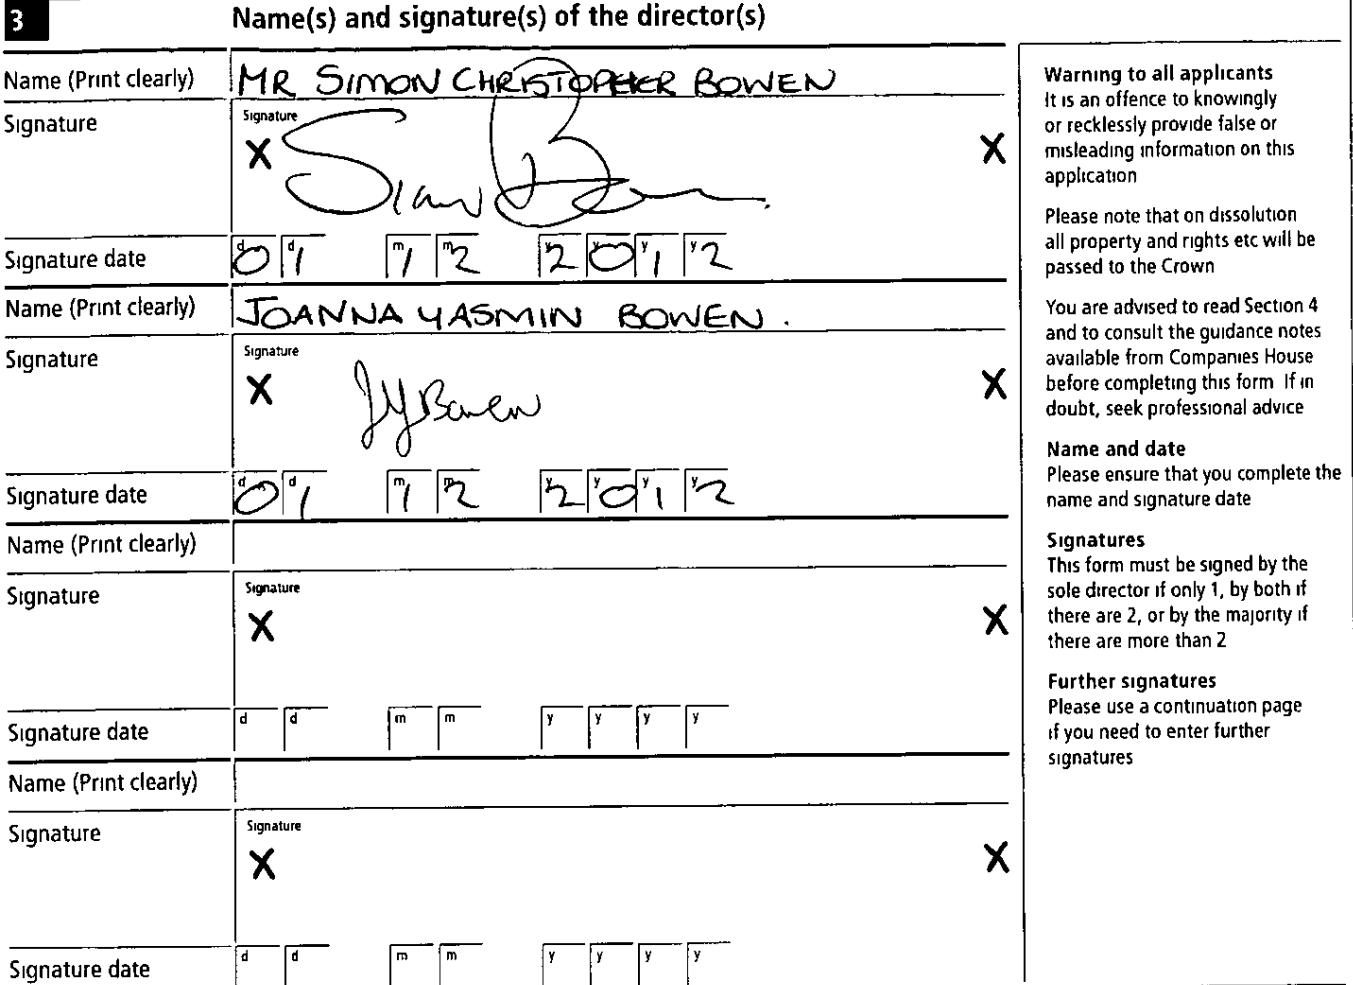 3 Name(s) and signature(s) of the director(s)
Name (Print clearly) MR SIMON CHRISTOPHER BOWEN
Signature Signature
X Simon Bowen X
Signature date d0 d1 m1 m2 y2 y0 y1 y2
Name (Print clearly) JOANNA YASMIN BOWEN.
Signature Signature
X JYBowen X
Signature date d0 d1 m1 m2 y2 y0 y1 y2
Name (Print clearly)
Signature Signature
X X
Signature date d d m m y y y y
Name (Print clearly)
Signature Signature
X X
Signature date d d m m y y y y
Warning to all applicants
It is an offence to knowingly
or recklessly provide false or
misleading information on this
application
Please note that on dissolution
all property and rights etc will be
passed to the Crown
You are advised to read Section 4
and to consult the guidance notes
available from Companies House
before completing this form If in
doubt, seek professional advice
Name and date
Please ensure that you complete the
name and signature date
Signatures
This form must be signed by the
sole director if only 1, by both if
there are 2, or by the majority if
there are more than 2
Further signatures
Please use a continuation page
if you need to enter further
signatures